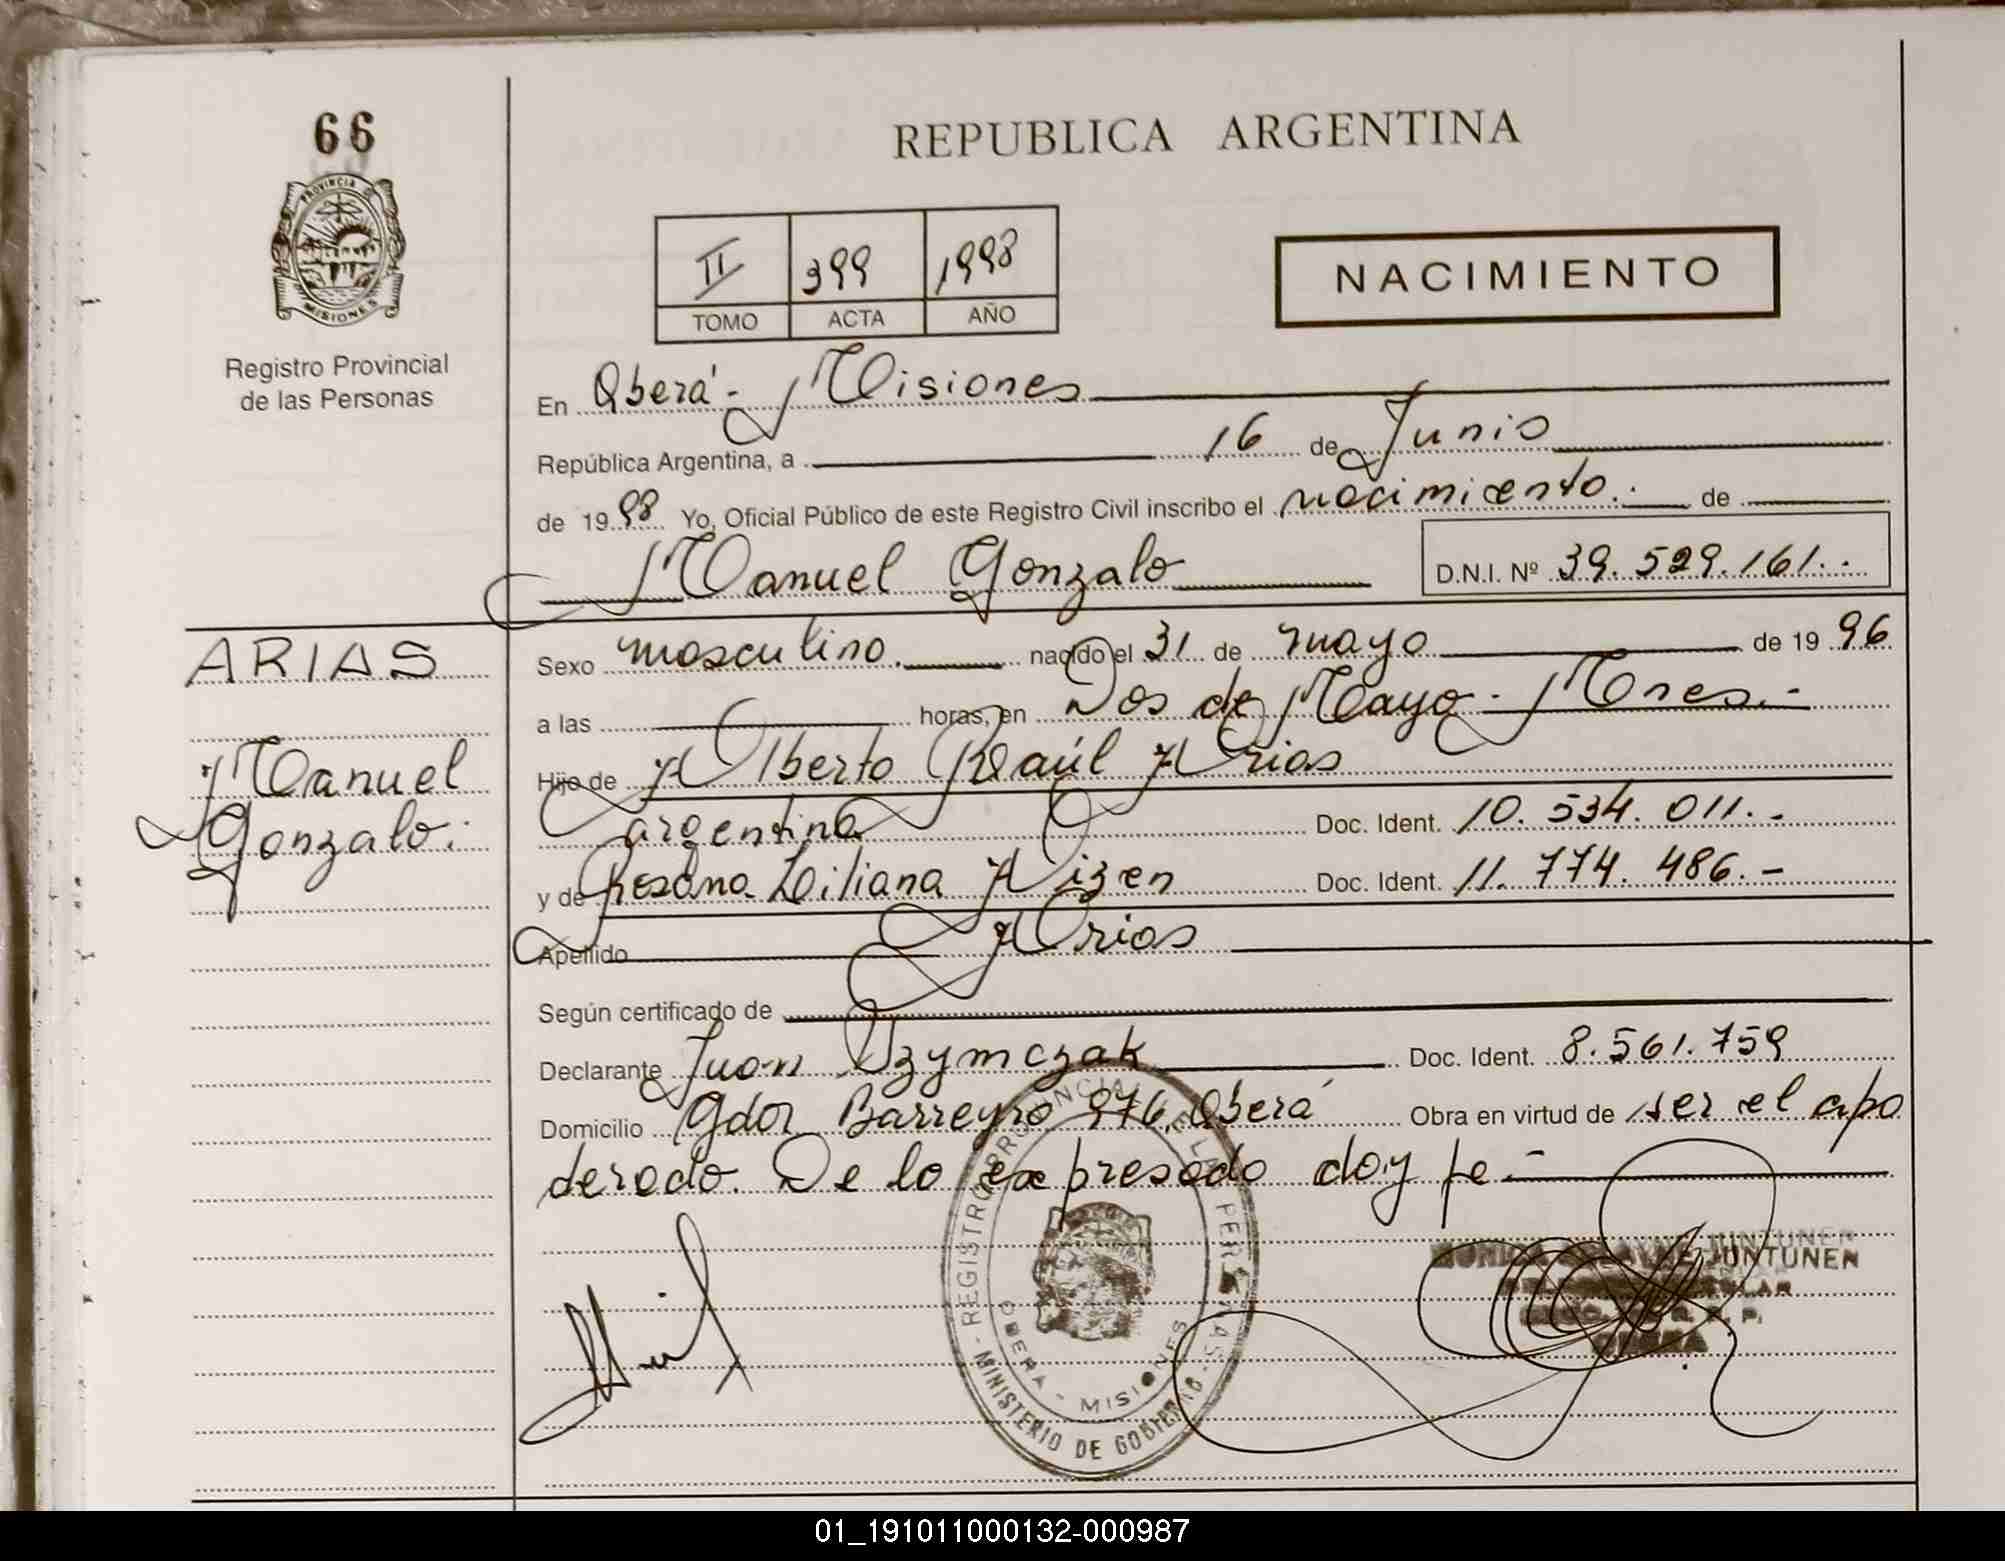 66
PROVINCIA DE
MISIONES
Registro Provincial
de las Personas
REPUBLICA ARGENTINA
II 399 1998
TOMO ACTA AÑO
NACIMIENTO
En Oberá - Misiones
República Argentina, a 16 de Junio
de 1998 Yo, Oficial Público de este Registro Civil inscribo el nacimiento. de
Manuel Gonzalo D.N.I. Nº 39.529.161.-
ARIAS
Manuel
Gonzalo.
Sexo masculino. nacido el 31 de mayo de 1996
a las horas, en Dos de Mayo - Mnes.-
Hijo de Alberto Raúl Arias
argentina Doc. Ident. 10.534.011.-
y de Rosana Liliana Aizen Doc. Ident. 11.774.486.-
Apellido Arias
Según certificado de
Declarante Juan Szymczak Doc. Ident. 8.561.759
Domicilio Gdor Barreyro 976, Oberá Obra en virtud de ser el apo
derado. De lo expresado doy fe.-
REGISTRO PROVINCIAL DE LAS PERSONAS
OBERA - MISIONES
MINISTERIO DE GOBIERNO
JUNTUNEN
OBERA
01_191011000132-000987